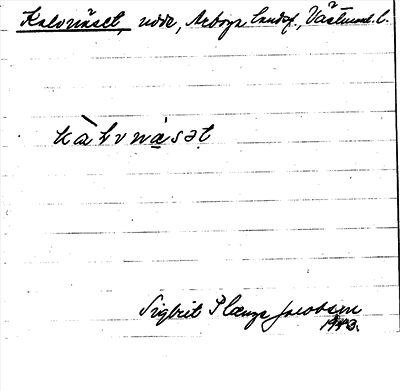 Kalvnäset, udde, Arboga landsf., Västmanl. l.
kàlvnä̀sət
Sigbrit Plænge Jacobson
1943.